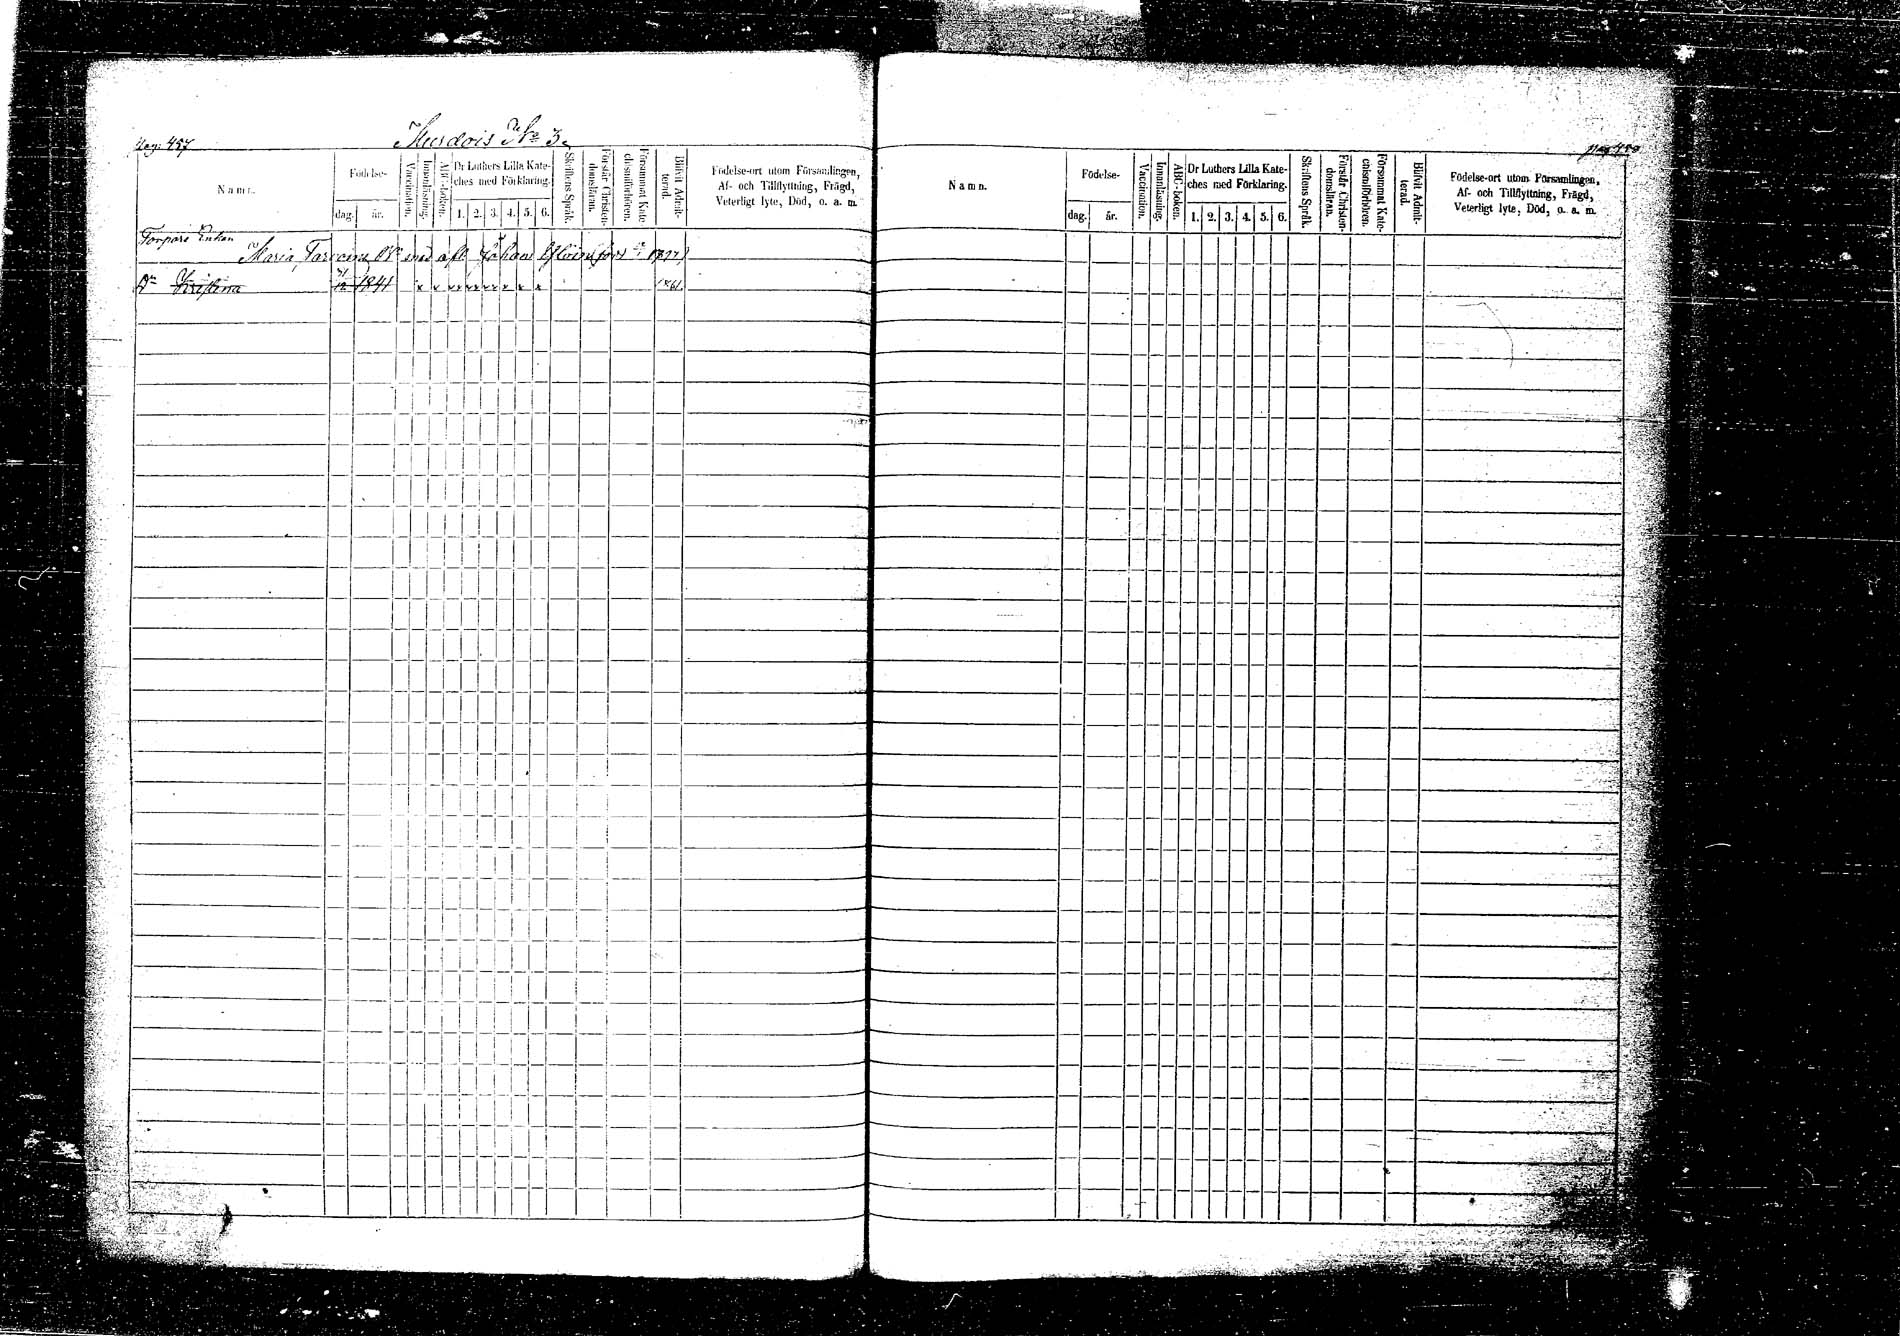 Pag: 457
No 3.
Namn.
Födelse-
dag. år.
Vaccination.
Innanläsning.
ABC-boken.
Dr Luthers Lilla Kate-
ches med Förklaring.
1. 2. 3. 4. 5. 6.
Skriftens Språk.
Förstår Christen-
domsläran.
Försummat Kate-
chismiförhören.
Blifvit Admit-
terad.
Födelse-ort utom Församlingen,
Af- och Tillflyttning, Frägd,
Veterligt lyte, Död, o. a. m.
Torpare Enkan
Maria
Dr Kristina 31/12 1841 x x x x x x x x x 1861
Pag 458
Namn.
Födelse-
dag. år.
Vaccination.
Innanläsning.
ABC-boken.
Dr Luthers Lilla Kate-
ches med Förklaring.
1. 2. 3. 4. 5. 6.
Skriftens Språk.
Förstår Christen-
domsläran.
Försummat Kate-
chismiförhören.
Blifvit Admit-
terad.
Födelse-ort utom Församlingen,
Af- och Tillflyttning, Frägd,
Veterligt lyte, Död, o. a. m.